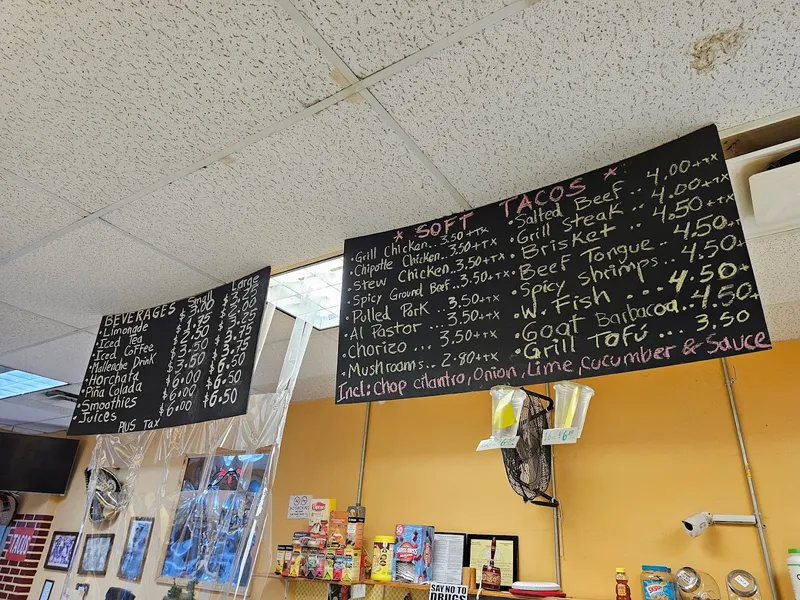 BEVERAGES Small Large
• Limonade
• Iced Tea
• Iced Coffee
• Mallenche Drink
• Horchata
• Piña Colada
• Smoothies
• Juices $6.00 $6.50
Plus Tax
* SOFT TACOS *
• Grill Chicken.. 3.50+TX
• Chipotle Chicken.. 3.50+TX
• Stew Chicken.. 3.50+TX
• Spicy Ground Beef.. 3.50+TX
• Pulled Pork .. 3.50+TX
• Al Pastor ... 3.50+TX
• Chorizo ... 3.50+TX
• Mushrooms.. 2.80+TX
• Salted Beef.. 4.00+TX
• Grill Steak.. 4.00+TX
• Brisket .. 4.50+TX
• Beef Tongue.. 4.50+
• Spicy Shrimps.. 4.50+
• W. Fish ... 4.50+
• Goat Barbacoa.. 4.50+
• Grill Tofu ... 3.50
Incl: Chop cilantro, Onion, Lime, Cucumber & Sauce
TACOS
SAY NO TO
DRUGS